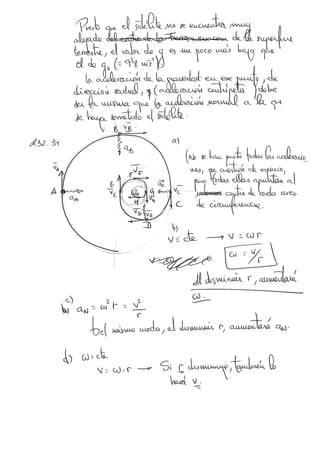 Puesto que el satélite no se encuentra muy
alejado del centro de la Tierra de la superficie
terrestre, el valor de g es un poco más bajo que
el de g₀ (= 9'8 m s⁻²)
La aceleración de la gravedad en ese punto, de
dirección radial, (aceleración centrípeta) debe
ser la misma que la aceleración normal a la que
se haya sometido el satélite.
232.34
a)
(No se han puesto todas las aceleracio
nes, por cuestión de espacio,
pero todas ellas apuntan al
centro de cada arco
de circunferencia.
B V_B
a_B
V_A
A
a_N
E
V_E
F V_F
G
V_C
C
D
b)
V = cte → V = ω r
ω = V/r
Al disminuir r, aumentará
ω.
c)
a_N = ω² r = v²/r
Del mismo modo, al disminuir r, aumentará a_N.
d) ω = cte
V = ω · r → Si r disminuye, también lo
hará v.